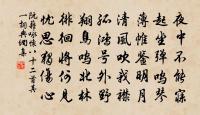 夜中不能寐
起坐彈鳴琴
薄帷鑒明月
清風吹我襟
孤鴻號外野
翔鳥鳴北林
徘徊將何見
忧思獨傷心
阮籍詠懷八十二首其
一詞典網書